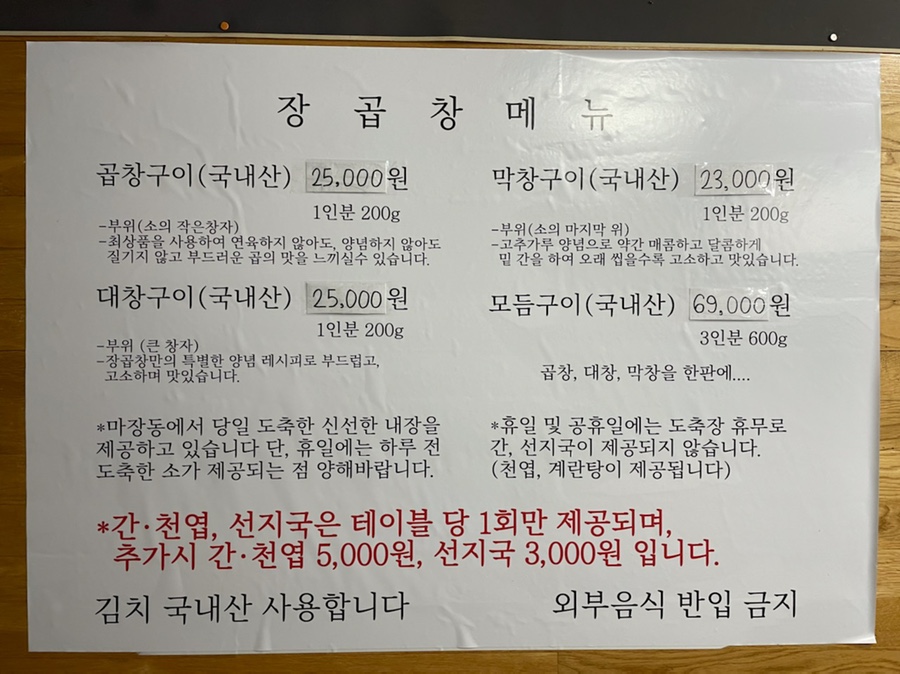 장 곱 창 메 뉴
곱창구이(국내산) 25,000원
1인분 200g
-부위(소의 작은창자)
-최상품을 사용하여 연육하지 않아도, 양념하지 않아도
질기지 않고 부드러운 곱의 맛을 느끼실수 있습니다.
막창구이(국내산) 23,000원
1인분 200g
-부위(소의 마지막 위)
-고추가루 양념으로 약간 매콤하고 달콤하게
밑 간을 하여 오래 씹을수록 고소하고 맛있습니다.
대창구이(국내산) 25,000원
1인분 200g
-부위 (큰 창자)
-장곱창만의 특별한 양념 레시피로 부드럽고,
고소하며 맛있습니다.
모듬구이(국내산) 69,000원
3인분 600g
곱창, 대창, 막창을 한판에....
*마장동에서 당일 도축한 신선한 내장을
제공하고 있습니다 단, 휴일에는 하루 전
도축한 소가 제공되는 점 양해바랍니다.
*휴일 및 공휴일에는 도축장 휴무로
간, 선지국이 제공되지 않습니다.
(천엽, 계란탕이 제공됩니다)
*간·천엽, 선지국은 테이블 당 1회만 제공되며,
추가시 간·천엽 5,000원, 선지국 3,000원 입니다.
김치 국내산 사용합니다
외부음식 반입 금지